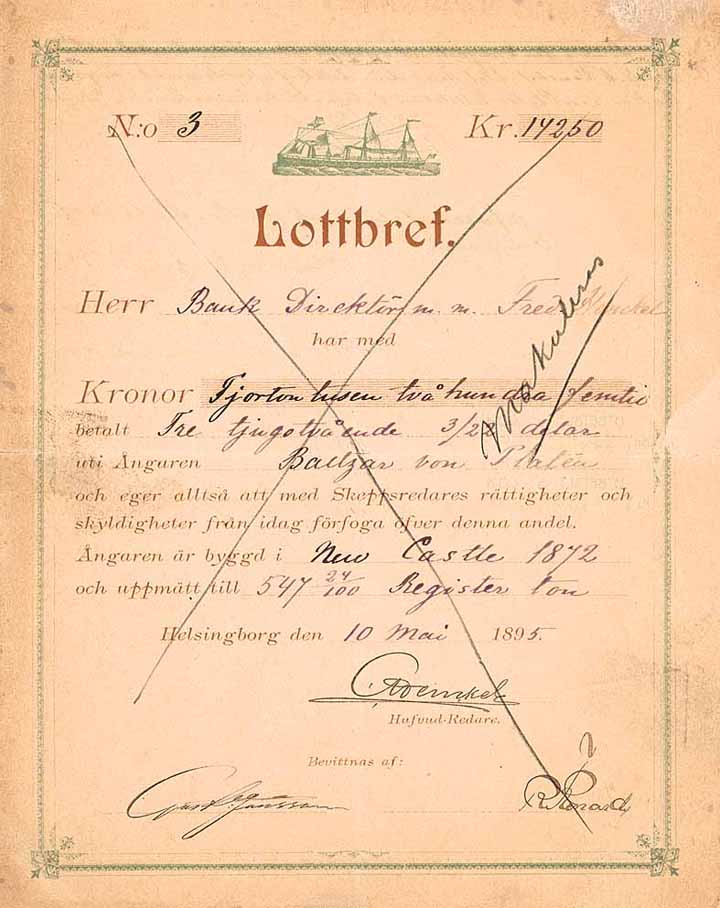 N:o 3 Kr. 14250
Lottbref.
Herr Bank Direktör m. m. Fred
har med
Kronor Fjorton tusen två hundra femtio
betalt Tre tjugotvående 3/22 delar
uti Ångaren Baltzar von Platen
och eger alltså att med Skeppsredares rättigheter och
skyldigheter från idag förfoga öfver denna andel.
Ångaren är byggd i New Castle 1872
och uppmätt till 547 24/100 Register ton
Helsingborg den 10 Mai 1895.
Hufvud-Redare.
Bevittnas af:
Makuleras